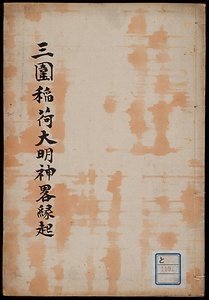 三圍稲荷大明神畧縁起
と